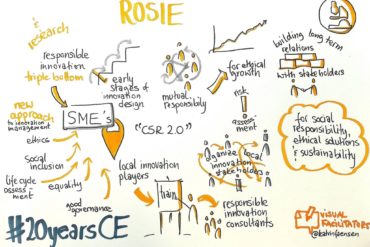 ROSIE
& research
responsible
innovation
triple bottom
early
stages of
innovation
design
mutual
responsibly
for ethical
growth
building long term
relations
with stakeholders
new
approach
to innovation
management
SME's
"CSR 2.0"
risk
assess-
ment
ethics
Social
inclusion
life cycle
assess-
ment
equality
good
governance
local innovation
players
train
organize local
innovation
stakeholders
responsible
innovation
consultants
for social
responsibility,
ethical solutions
& sustainability
#20yearsCE
VISUAL
FACILITATORS